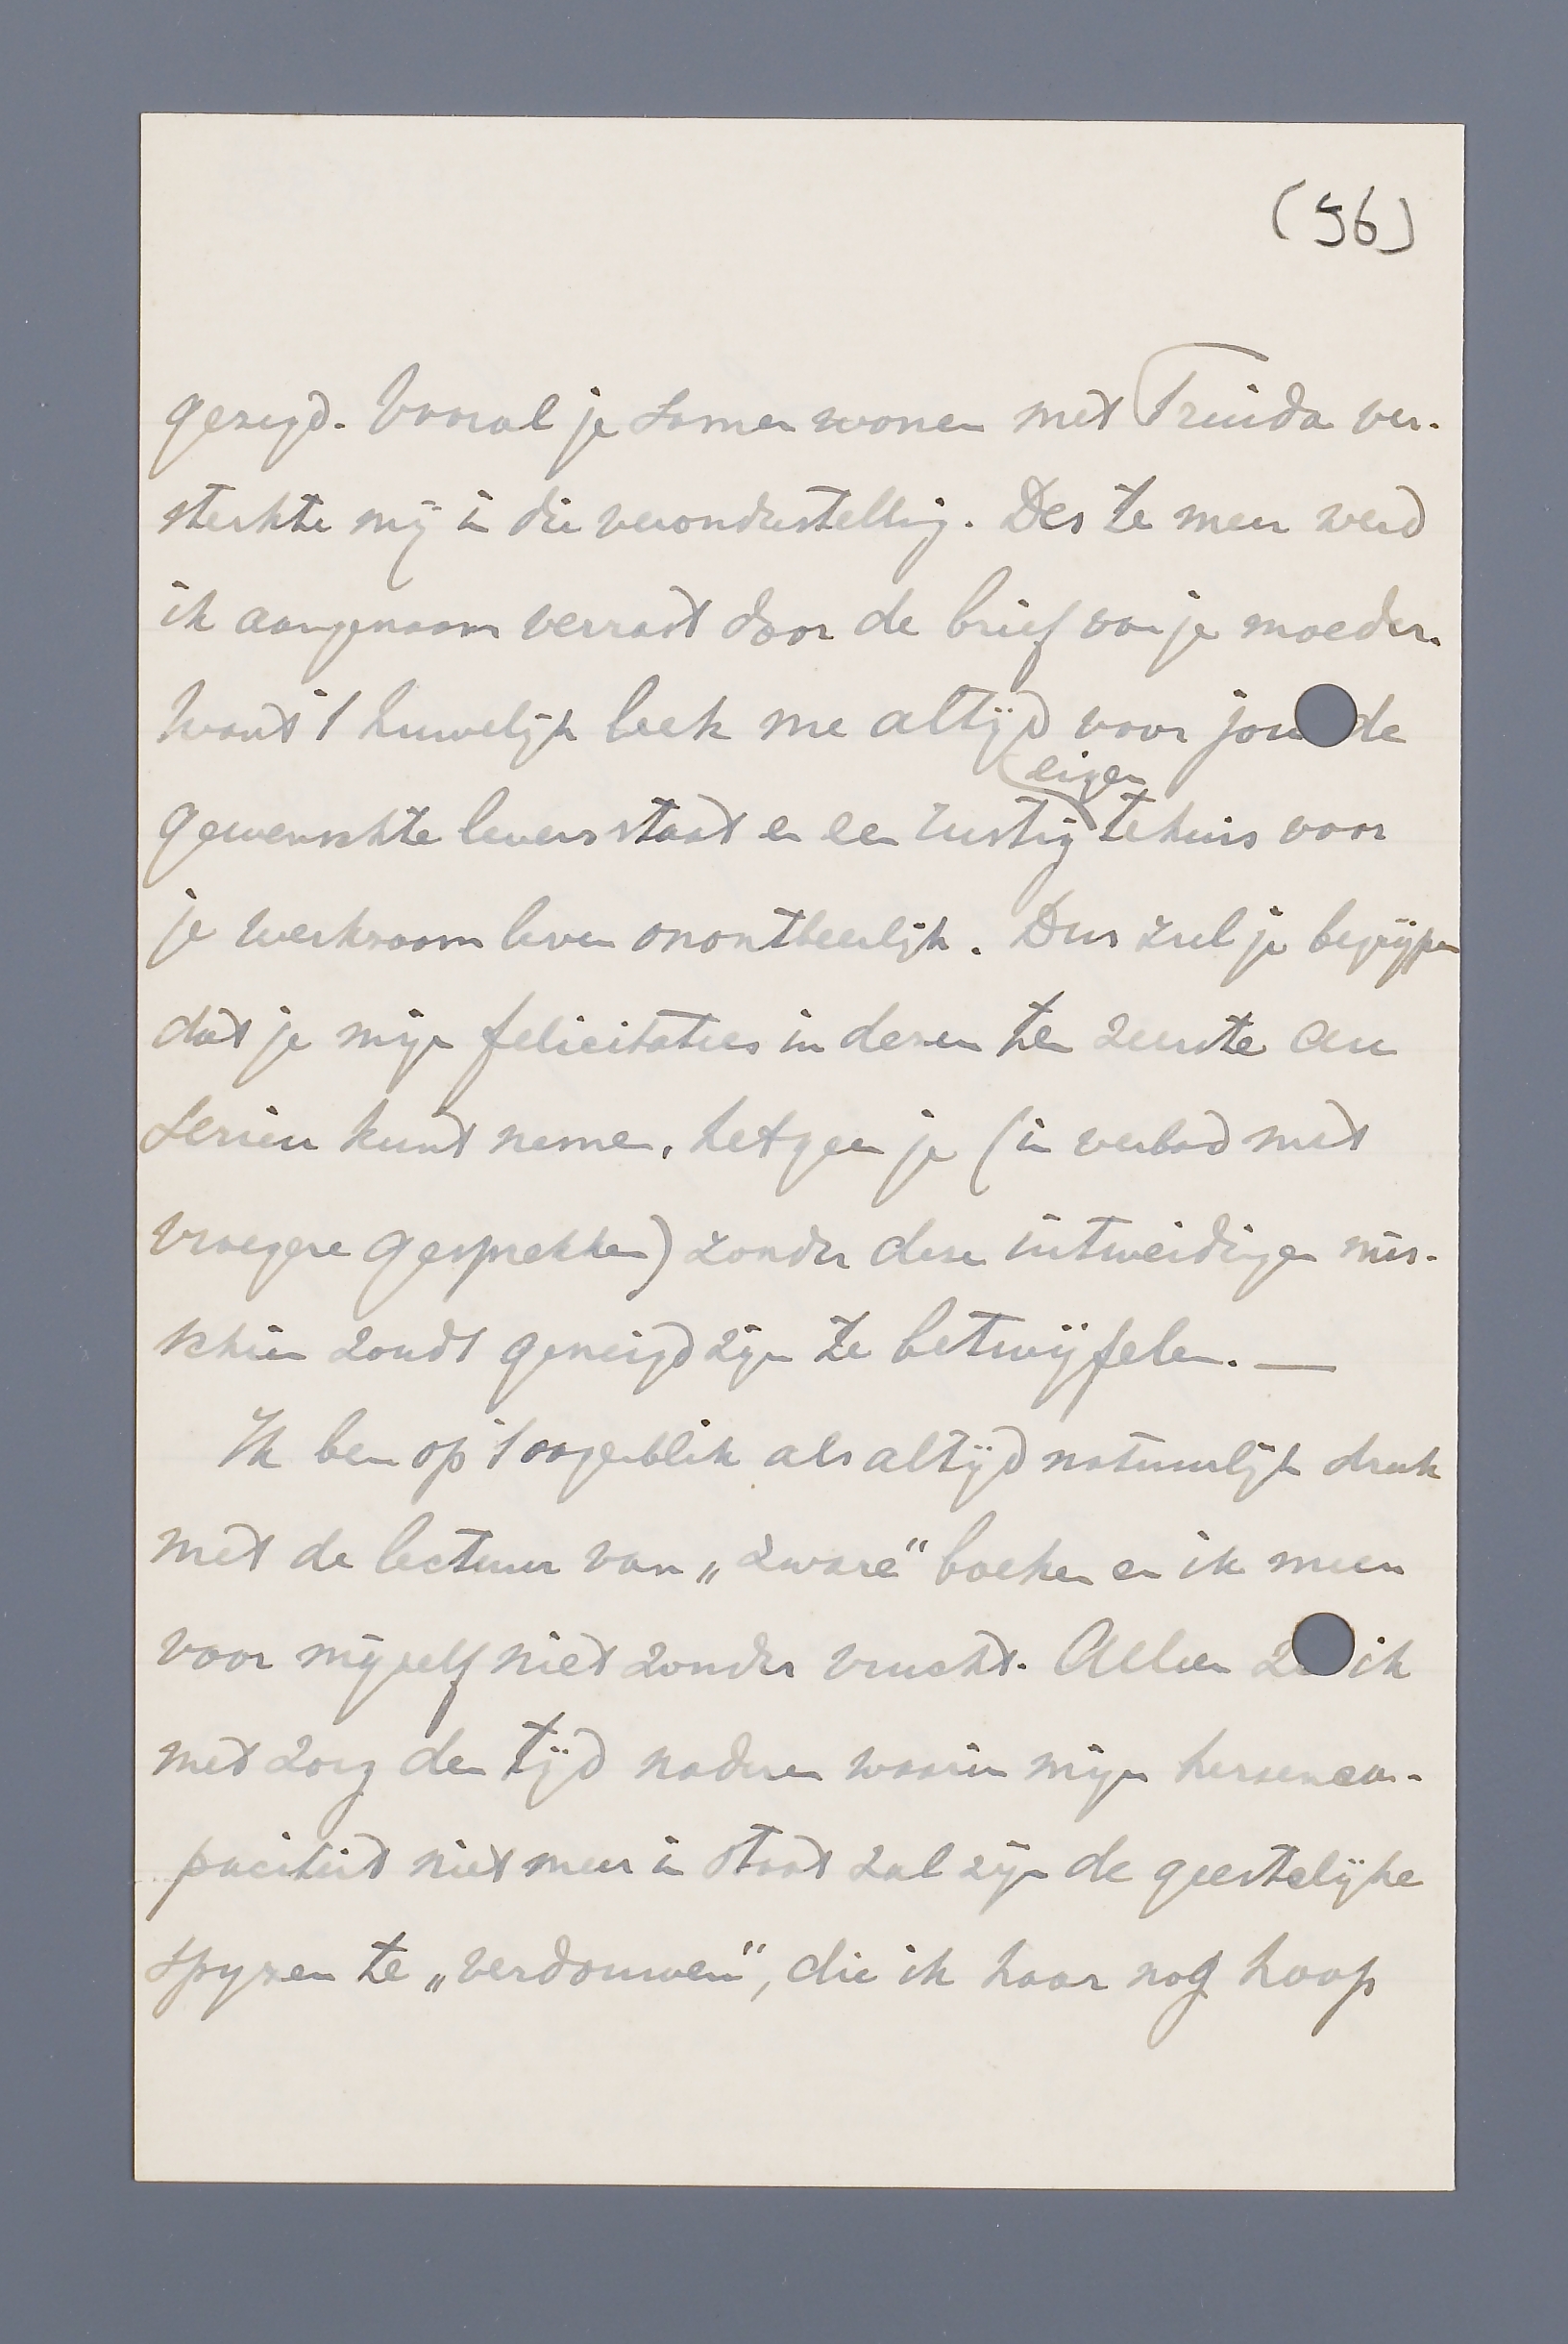 (56)
gezegd. Vooral je samen wonen met Truida ver-
sterkte mij in die veronderstelling. Des te meer werd
ik aangenaam verrast door de brief van je moeder.
Want 't huwelijk leek me altijd voor jou de
eigen
gewenschte levensstaat en een rustig tehuis voor
je werkzaam leven onontbeerlijk. Dus zul je begrijpen
dat je mijn felicitaties in dezen ten zeerste au
serieu kunt nemen, hetgeen je (in verband met
vroegere gesprekken) zonder deze uitweidingen mis-
schien zoudt geneigd zijn te betwijfelen. —
Ik ben op 't oogenblik als altijd natuurlijk druk
met de lectuur van „zware" boeken en ik meen
voor mijzelf niet zonder vrucht. Alleen ik
met zorg den tijd naderen waarin mijn hersenca-
paciteit niet meer in staat zal zijn de geestelijke
spijzen te „verdouwen", die ik haar nog hoop